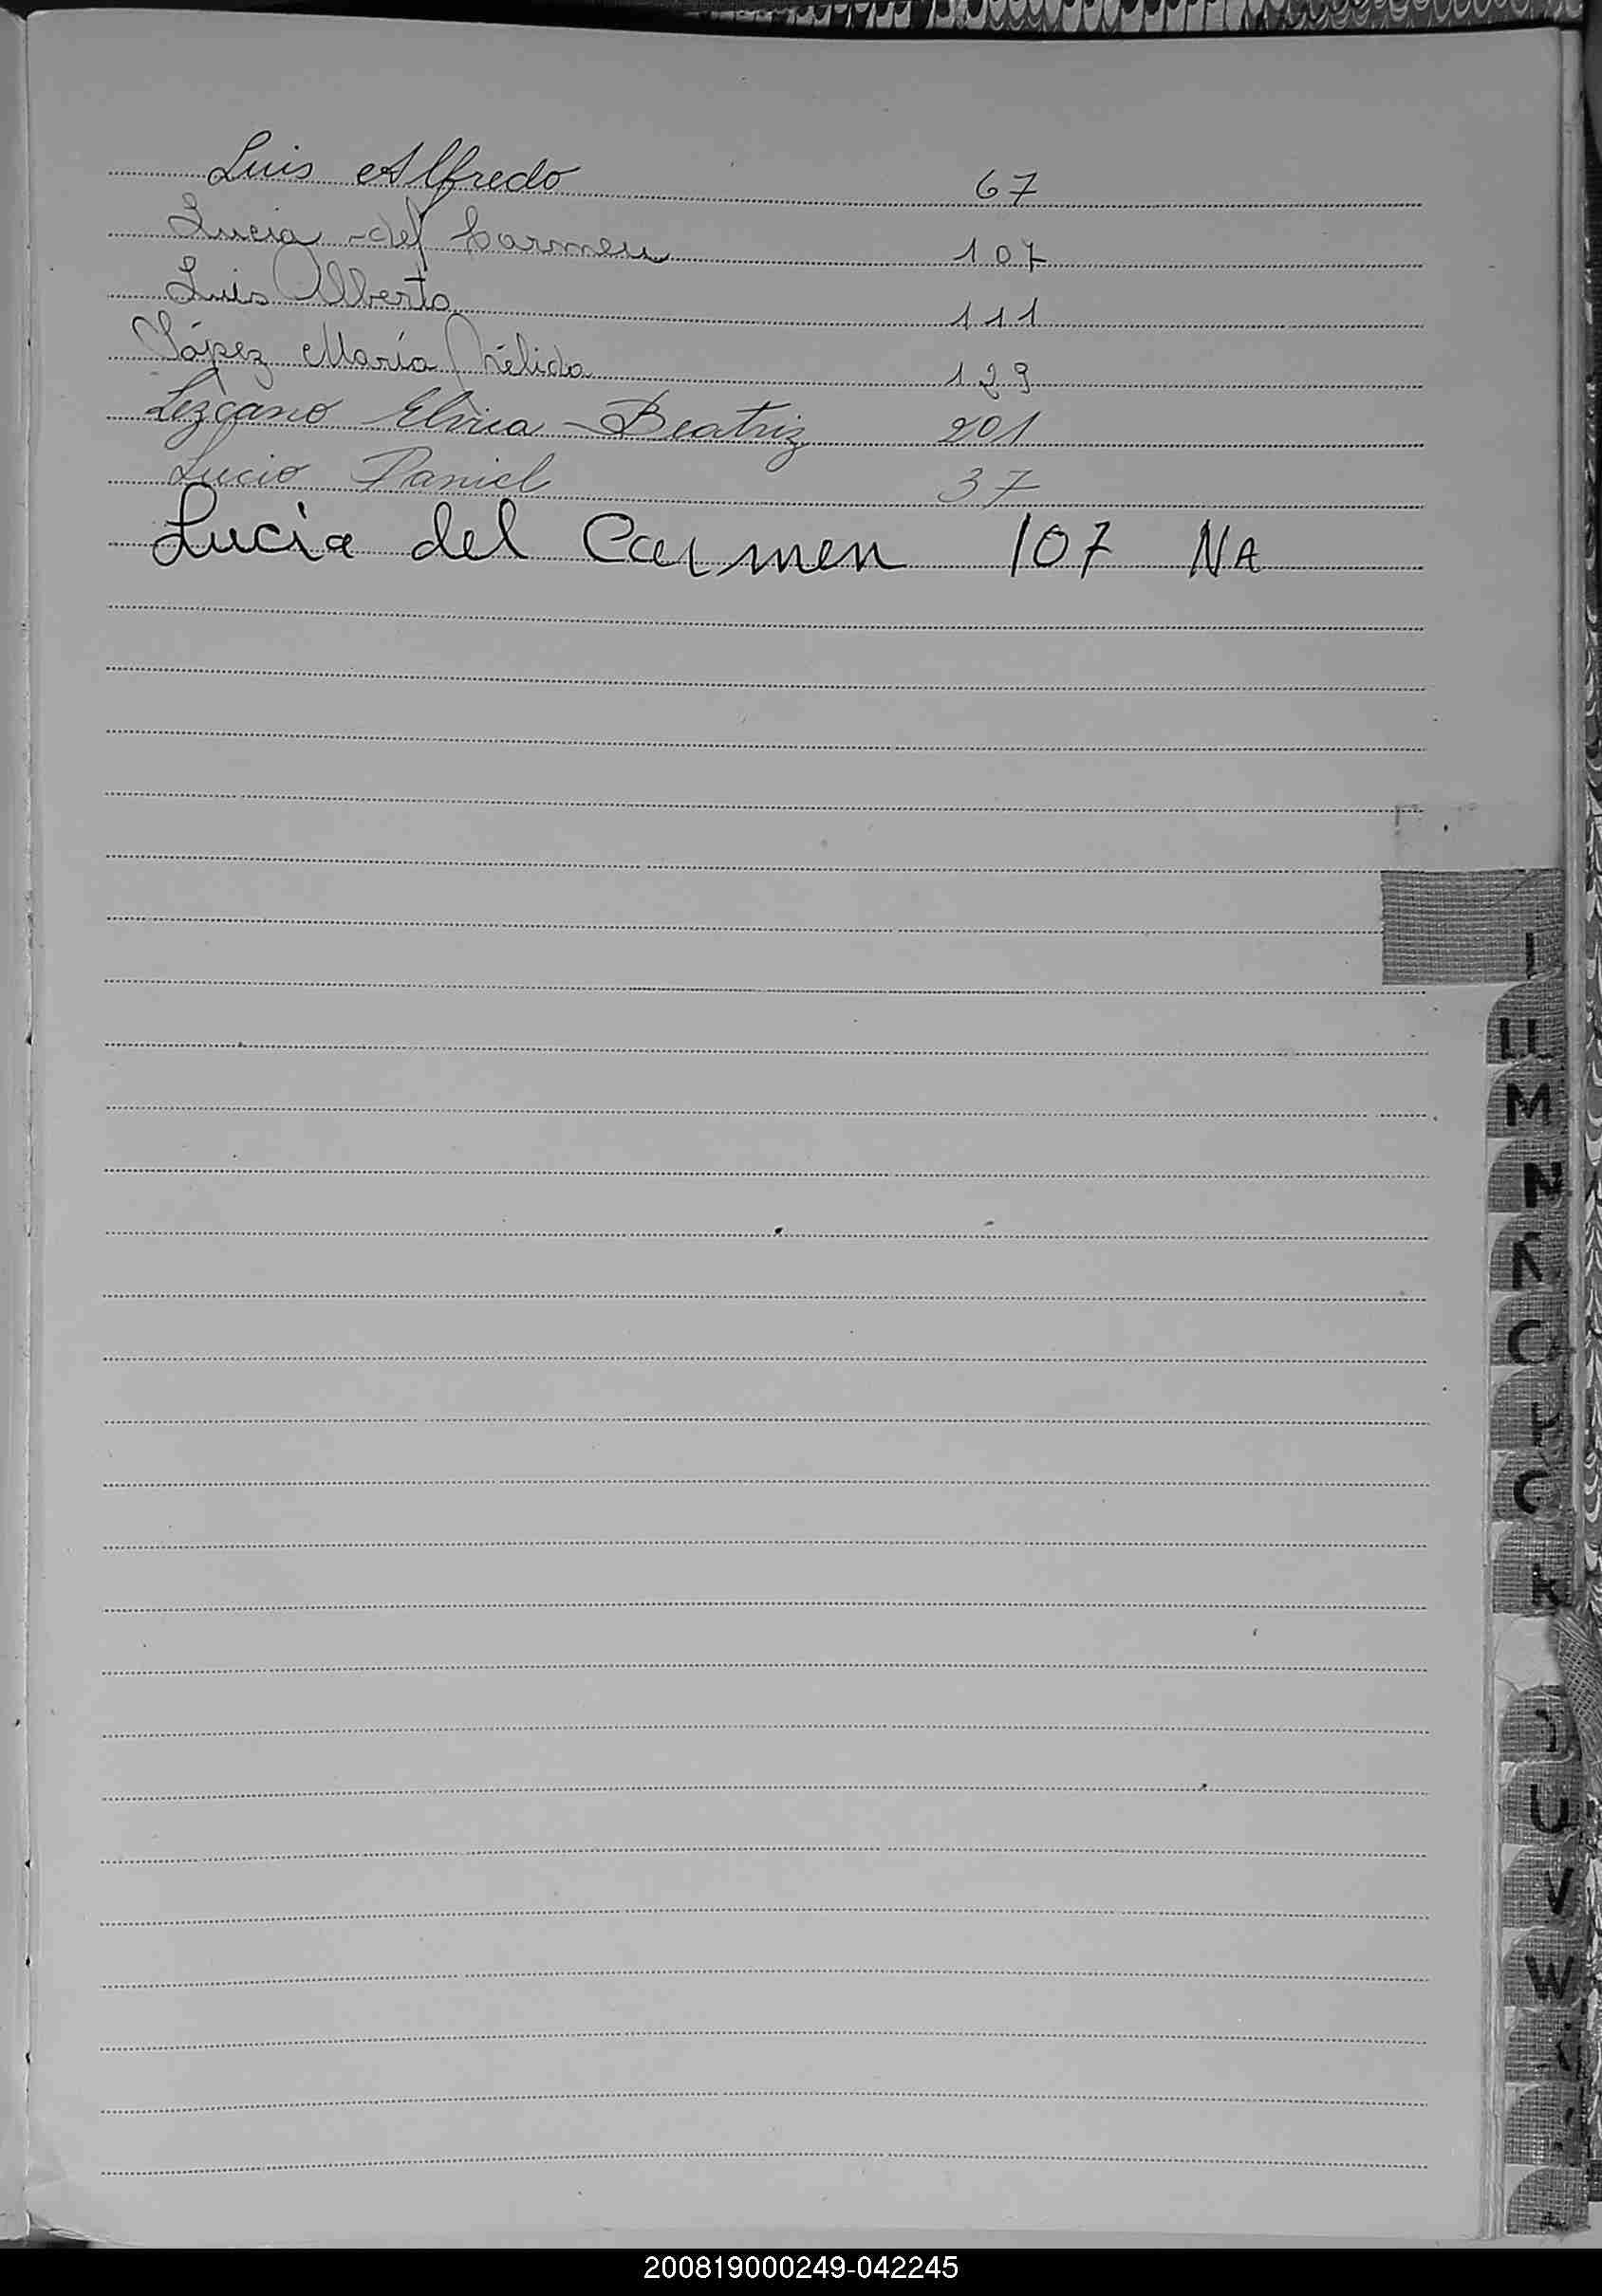 Luis Alfredo 67
Lucia del Carmen 107
Luis Alberto 111
López María Nélida 129
Lezcano Elvira Beatriz 201
Lucio Daniel 37
Lucia del Carmen 107 NA
L
LL
M
N
Ñ
O
P
Q
R
T
U
V
W
200819000249-042245